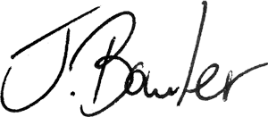 J. Bowler